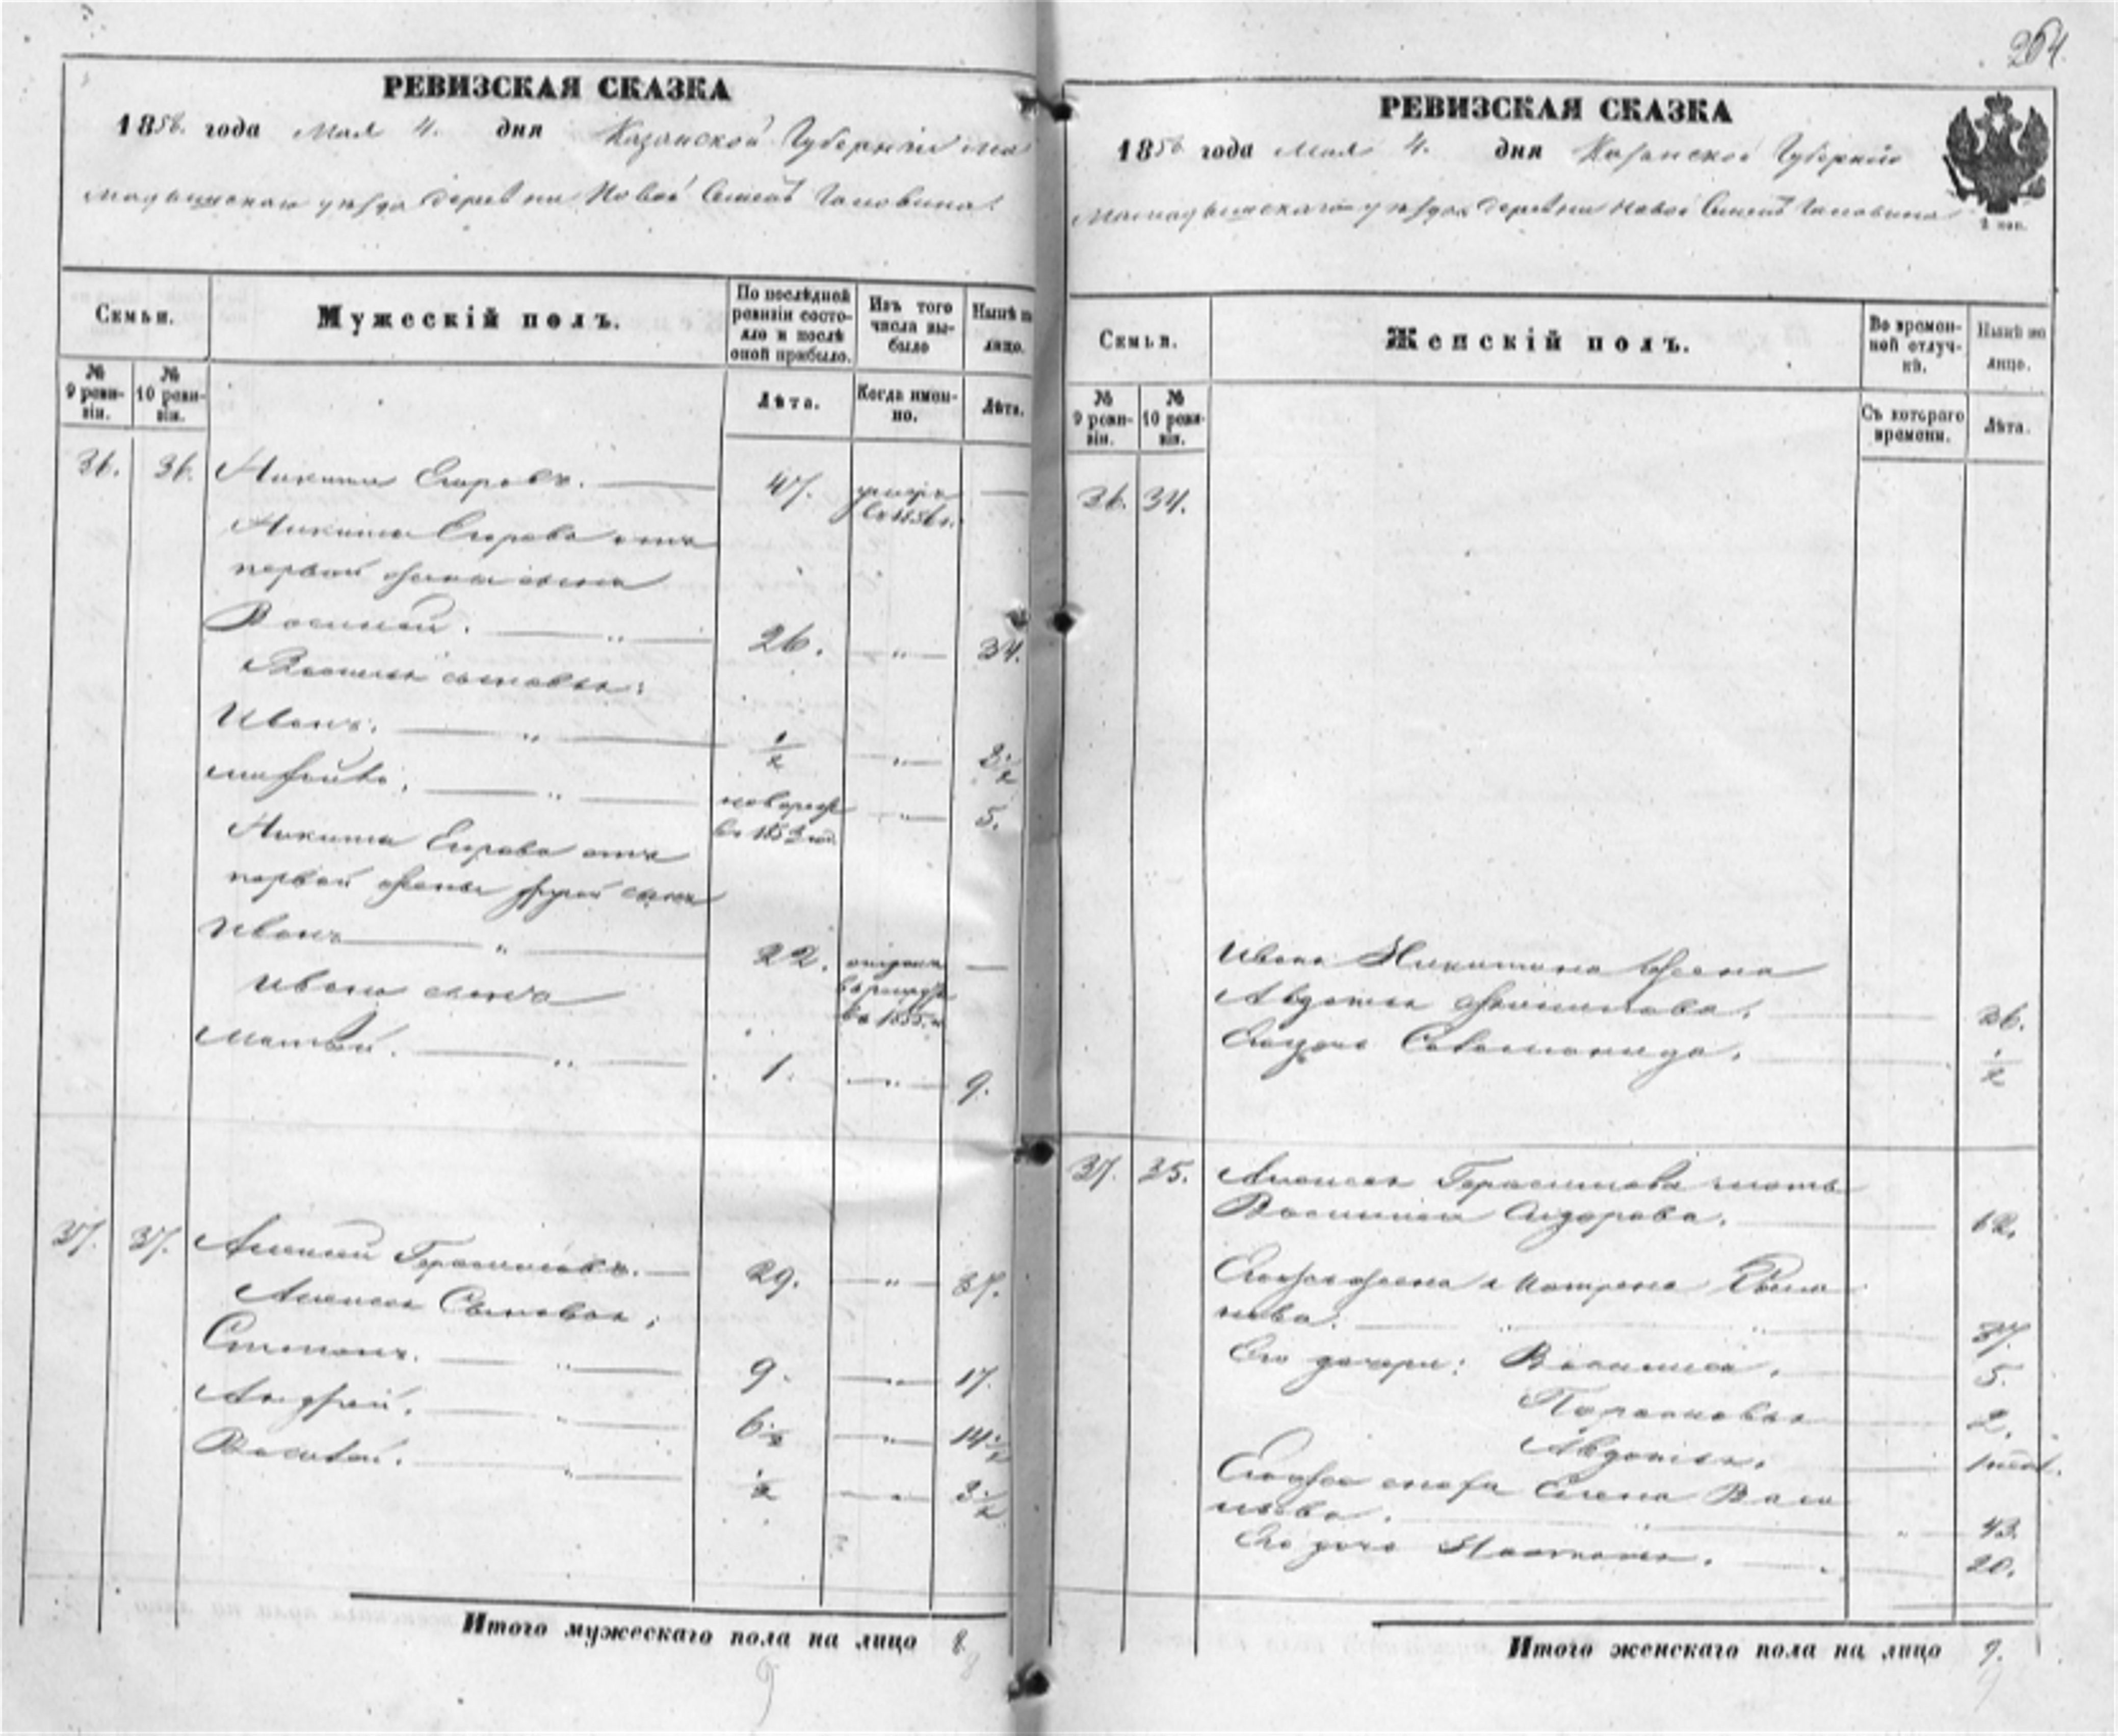 264.
РЕВИЗСКАЯ СКАЗКА
1858. года Мая 4. дня Казанской Губерніи Ма
мадышскаго уѣзда деревни Новой
Семьи.
Мужескій полъ.
По послѣдней ревизіи состояло и послѣ оной прибыло.
Изъ того числа выбыло
Нынѣ на лицо.
№ 9 ревизіи.
№ 10 ревизіи.
Лѣта.
Когда именно.
Лѣта.
36. 36. Никита Егоровъ. 47. —
Никиты Егорова отъ
первой жены сынъ
Василий. 26. 34.
Василья сыновья:
Иванъ. 1/2 8 1/2
новорож 5.
въ 1853 год.
Никиты Егорова отъ
первой жены другой сынъ
Иванъ 22. отданъ —
въ рекруты
въ 1855. г.
Ивана сынъ
Матвѣй. 1. 9.
37. 37. Алексей Герасимовъ. 29. 37.
Алексея Сыновья:
Степанъ. 9. 17.
Андрей. 6 1/2 14 1/2
Василий. 1/2 8 1/2
Итого мужескаго пола на лицо 8.
9 8
РЕВИЗСКАЯ СКАЗКА
1858 года Мая 4. дня Казанской Губерніи
Мамадышскаго уѣзда деревни Новой
Семьи.
Женскій полъ.
Во временной отлучкѣ.
Нынѣ на лицо.
№ 9 ревизіи.
№ 10 ревизіи.
Съ котораго времени.
Лѣта.
36. 34.
Ивана Никитина жена
Авдотья 26.
1/2
37. 35. Алексея Герасимова мать
Василиса Сидорова. 62.
жена Матрена
37.
Его дочери: Василиса. 5.
Парасковья 2.
Авдотья.
Елена Васи
льева. 43.
Ея дочь 20.
Итого женскаго пола на лицо 9.
9